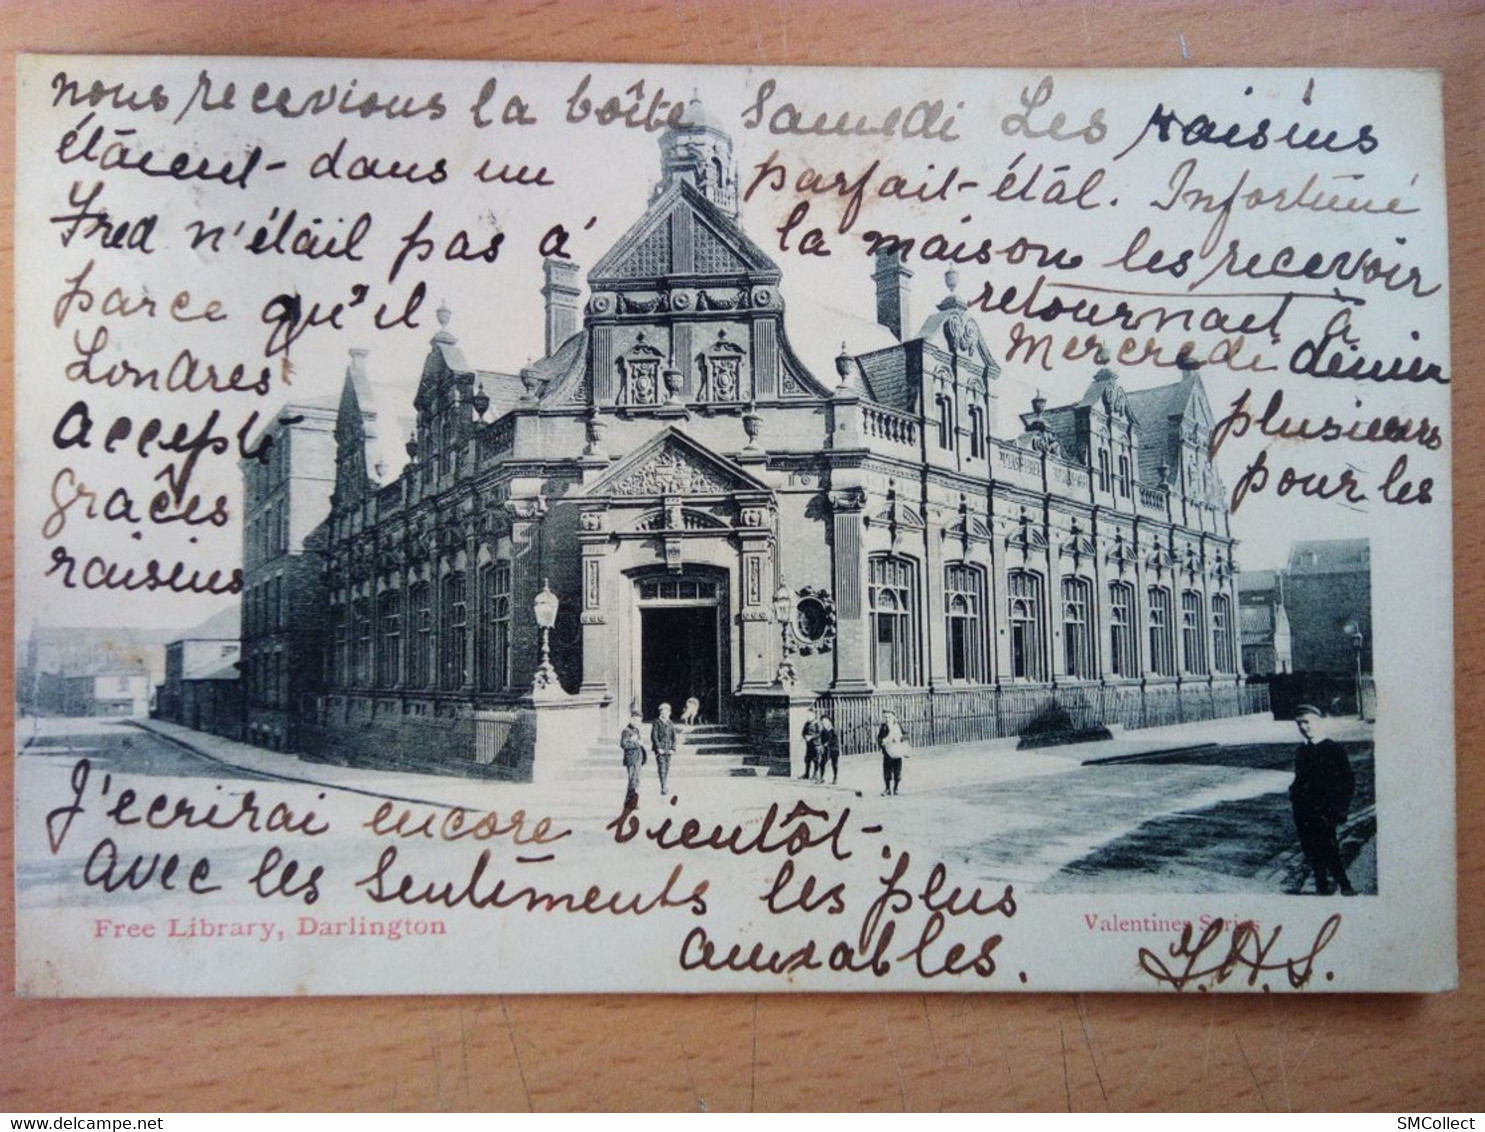 nous recevious la boîte Samedi Les raisins
étáient dans un parfait étâl. Infortuné
Fred n'étáil pas á la maison les recevoir
parce qu'il retournait à
Londres Mercredi dénier
Accepté plusieurs
grâces pour les
raisins
J'ecrirai encore bientôt.
Avec les sentiments les plus
aimables.
Free Library, Darlington
Valentines Series
J.H.S.